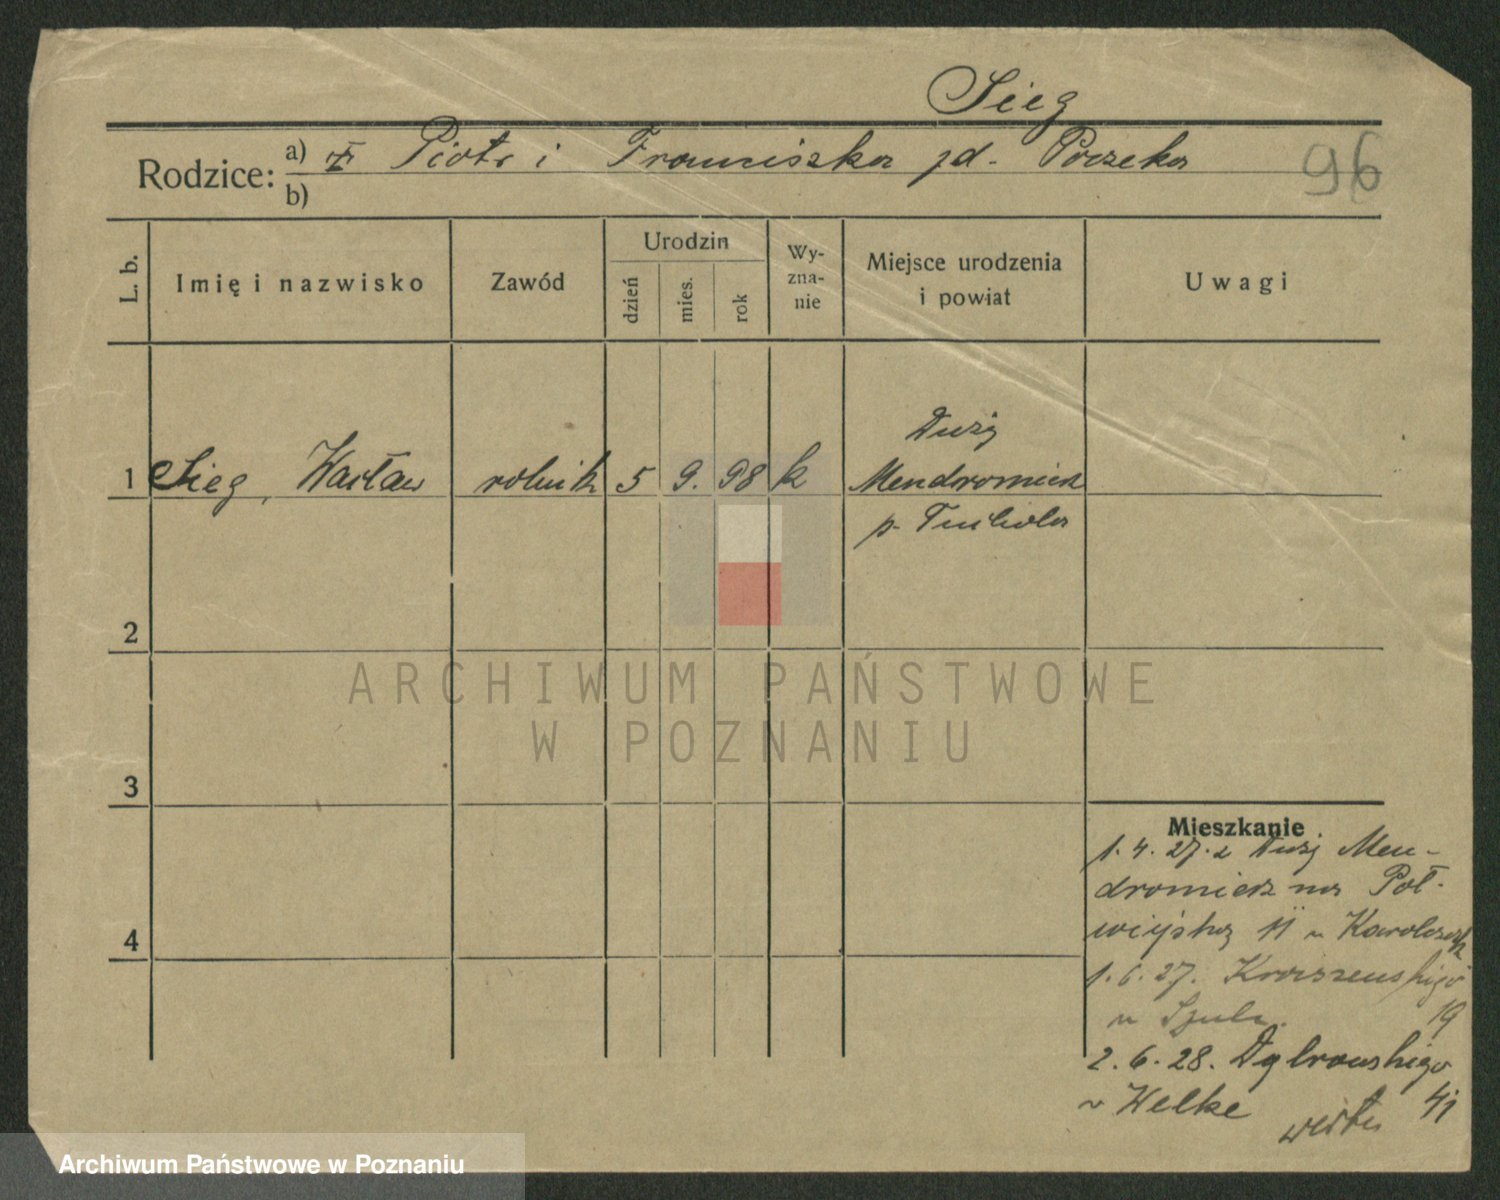 Sieg
Rodzice: a) Piotr i Franciszka zd. 96
b)
L. b. Imię i nazwisko Zawód Urodzin dzień mies. rok Wyznanie Miejsce urodzenia i powiat Uwagi
Duży
1 Sieg, Wacław rolnik 5 9. 98 k Mendromierz
p. Tuchola
2
ARCHIWUM PAŃSTWOWE
W POZNANIU
3
Mieszkanie
1.4.27. z Duży Men-
dromierz na Pół-
wiejską 11
1.6.27. Kraszewskiego
u Szulc. 19
2.6.28. Dąbrowskiego
u Welke
Archiwum Państwowe w Poznaniu
4